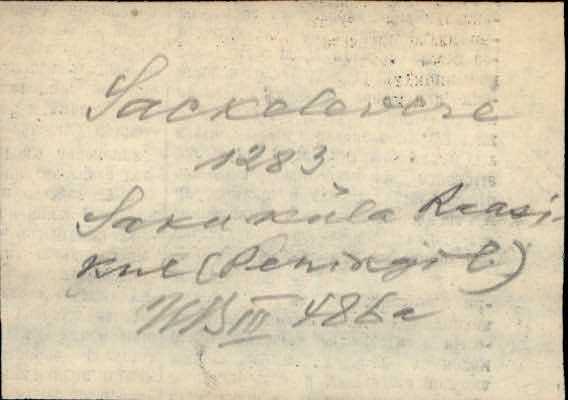 Sackelevere
1283
Saku küla Raasi-
kul (Peningi l.)
UB III 486a